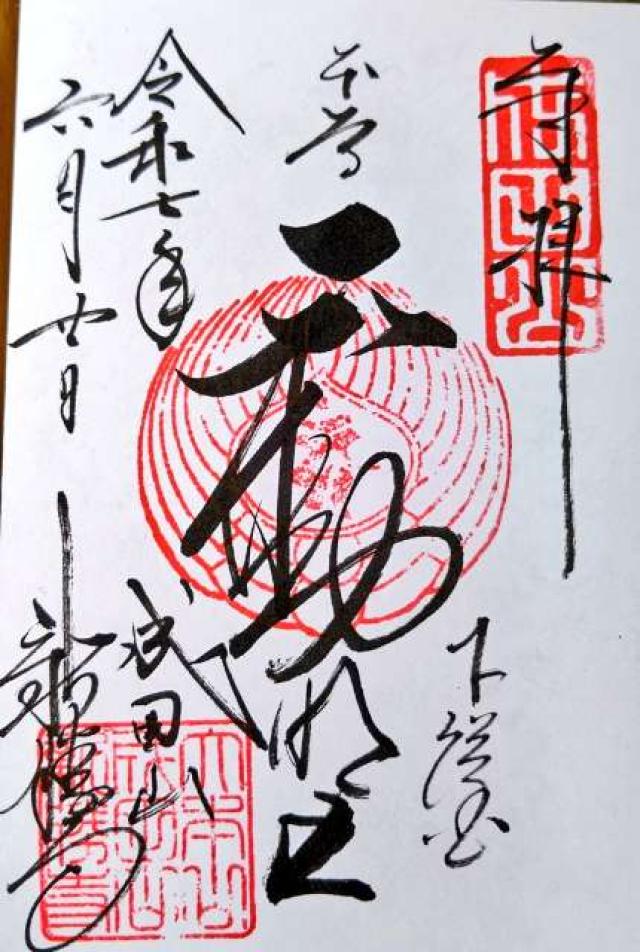 奉拝
下総国
本尊
不動明王
令和七年
六月廿日
成田山
新勝寺